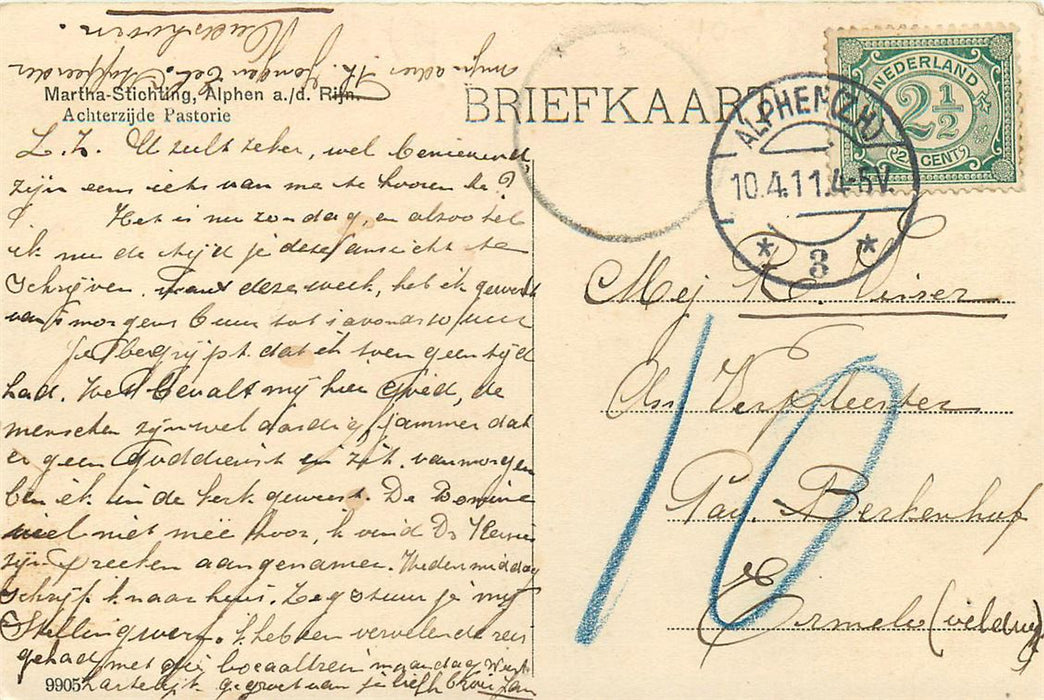 mijn adres
Martha-Stichting, Alphen a./d. Rijn.
Achterzijde Pastorie
BRIEFKAART
NEDERLAND
2½
2½ CENT
ALPHEN (Z.H)
10.4.11.4-5V.
3
L. Z. U zult zeker, wel benieuwd
zijn eens iets van me te hooren hè?
Het is nu zondag, en alzoo
ik nu de tijd je deze ansicht te
Schrijven. Want deze week, heb ik gewerkt
van 's morgens uur tot s avonds 10 uur
Je begrijpt dat ik toen geen tijd
had. Het bevalt mij hier goed, de
menschen zijn wel aardig jammer dat
er geen Goddienst in zit. van morgen
ben ik in de kerk geweest. De Domine
viel niet mee hoor, ik vond Ds
zijn preeken aangenamer. Hedenmiddag
schrijf k naar huis. Zeg stuur je mij
Stellingwerf. k heb een vervelende reis
gehad, met die bocaaltrein maandag
hartelijk gegroet van je liefh
9905
Mej R. Visser
Verpleegster
Pav. Berkenhof
Ermelo (veldwijk)
10